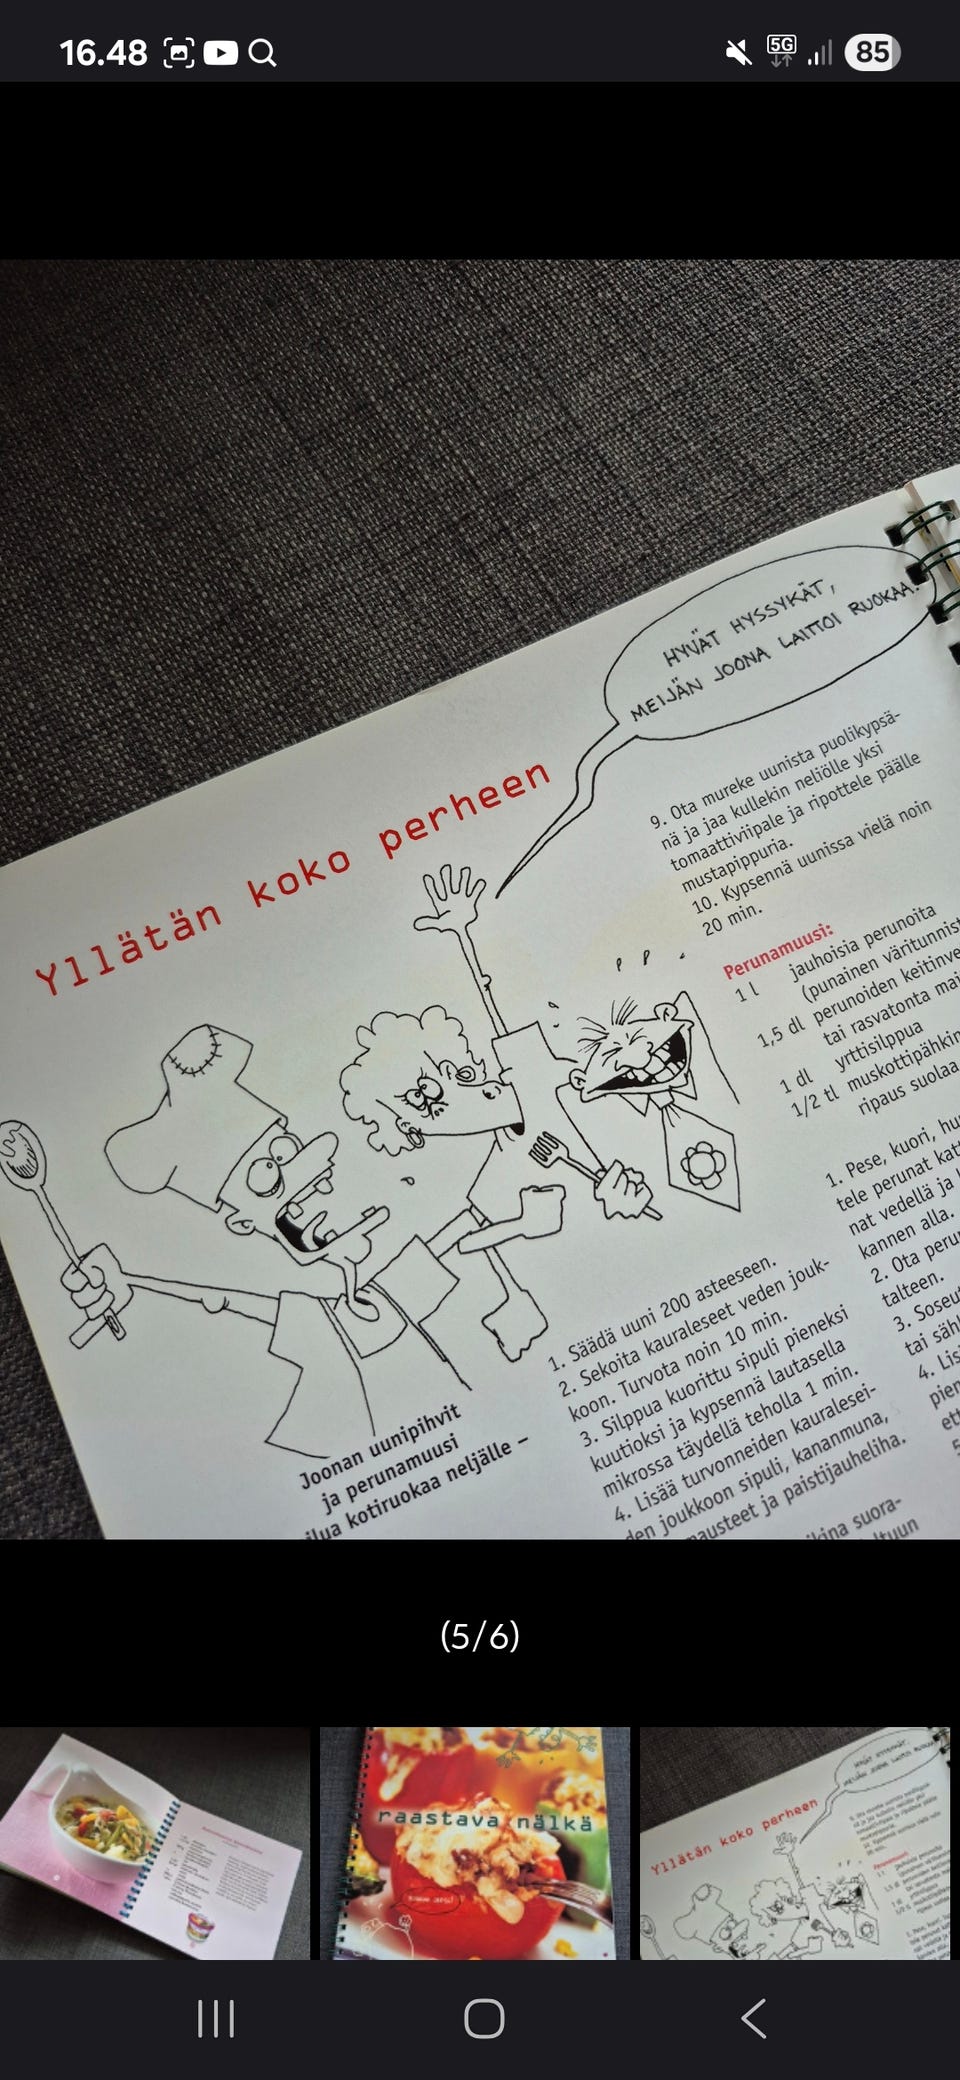 16.48
5G
85
HYVÄT HYSSYKÄT,
MEIJÄN JOONA LAITTOI RUOKAA!
Yllätän koko perheen
9. Ota mureke uunista puolikypsä-
nä ja jaa kullekin neliölle yksi
tomaattiviipale ja ripottele päälle
mustapippuria.
10. Kypsennä uunissa vielä noin
20 min.
Perunamuusi:
1 l jauhoisia perunoita
(punainen väritunnist
1,5 dl perunoiden keitinve
tai rasvatonta mai
1 dl yrttisilppua
1/2 tl muskottipähkin
ripaus suolaa
1. Pese, kuori, hu
tele perunat kat
nat vedellä ja
kannen alla.
2. Ota peru
talteen.
3. Soseu
tai säh
4. Lis
pien
ett
5
Joonan uunipihvit
ja perunamuusi
ilua kotiruokaa neljälle –
1. Säädä uuni 200 asteeseen.
2. Sekoita kauraleseet veden jouk-
koon. Turvota noin 10 min.
3. Silppua kuorittu sipuli pieneksi
kuutioksi ja kypsennä lautasella
mikrossa täydellä teholla 1 min.
4. Lisää turvonneiden kauralesei-
den joukkoon sipuli, kananmuna,
mausteet ja paistijauheliha.
ikina suora-
ltuun
(5/6)
raastava nälkä
HYVÄT HYSSYKÄT,
MEIJÄN JOONA LAITTOI RUOKAA!
Yllätän koko perheen